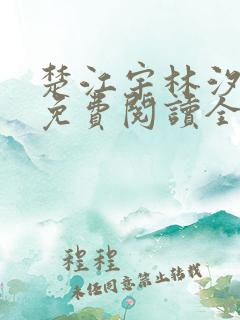 楚江宇林汐
免費閱讀全
程程
未經同意禁止轉載